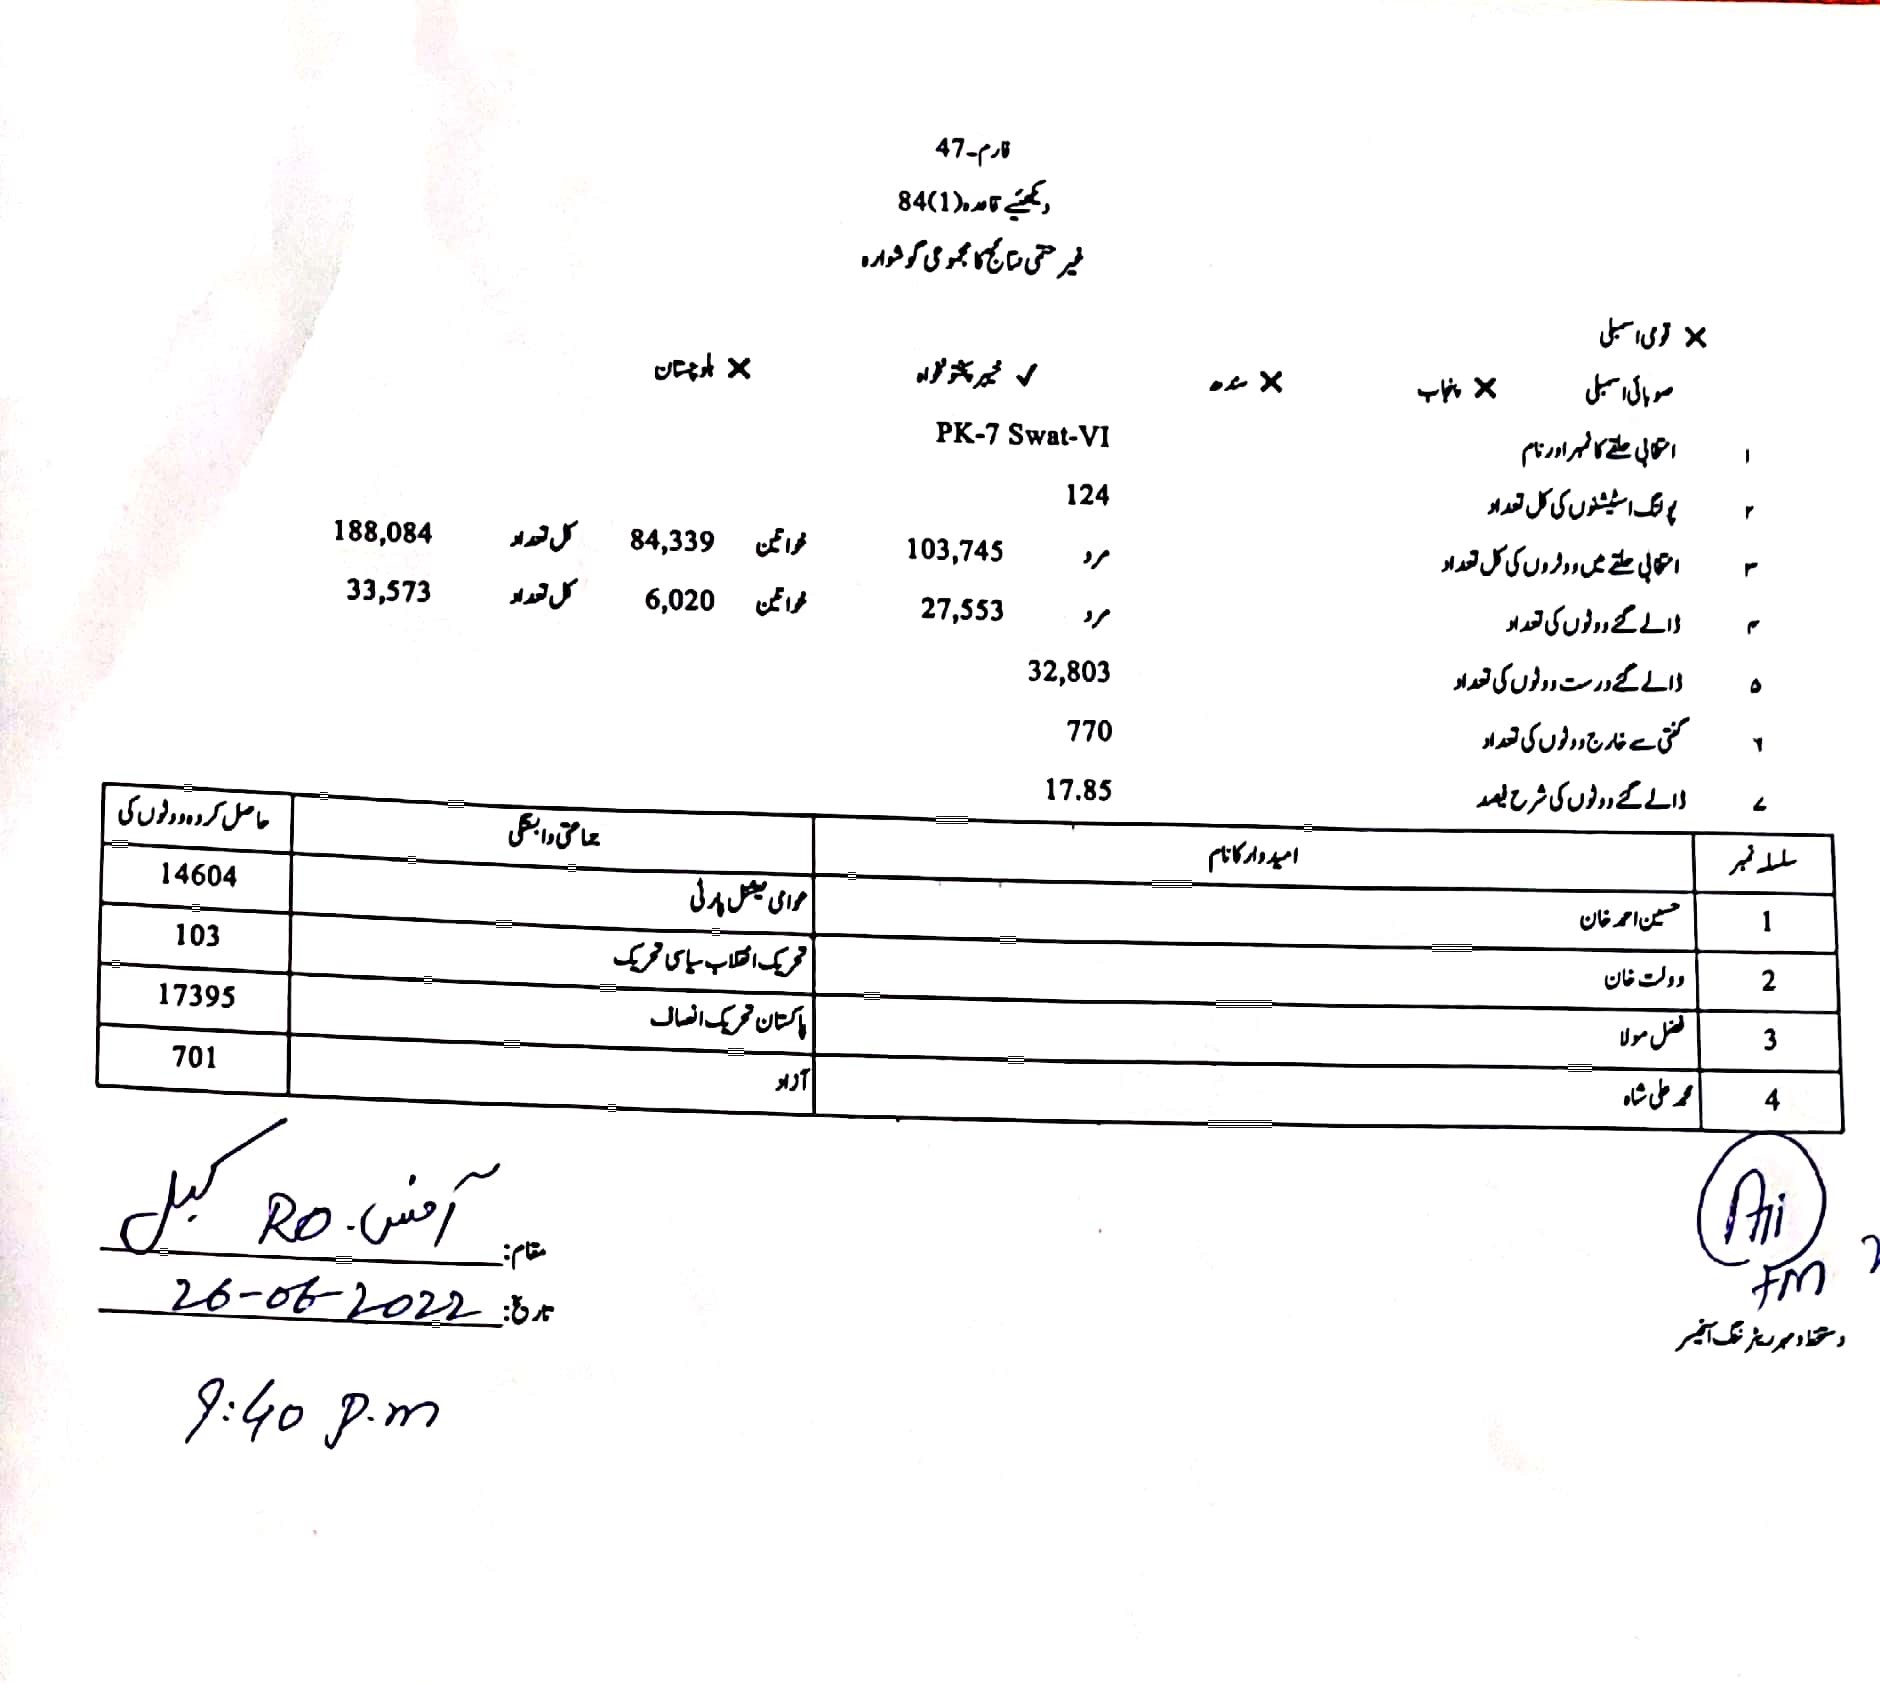 فارم-47
دیکھئیے قاعدہ(1)84
غیر حتمی نتائج کا مجموعی گوشوارہ
✘ قومی اسمبلی
صوبائی اسمبلی ✘ پنجاب ✘ سندھ ✔ خیبر پختونخواہ ✘ بلوچستان
۱ انتخابی حلقے کا نمبر اور نام PK-7 Swat-VI
۲ پولنگ اسٹیشنوں کی کل تعداد 124
۳ انتخابی حلقے میں ووٹروں کی کل تعداد مرد 103,745 خواتین 84,339 کل تعداد 188,084
۴ ڈالے گئے ووٹوں کی تعداد مرد 27,553 خواتین 6,020 کل تعداد 33,573
۵ ڈالے گئے درست ووٹوں کی تعداد 32,803
۶ گنتی سے خارج ووٹوں کی تعداد 770
۷ ڈالے گئے ووٹوں کی شرح فیصد 17.85
سلسلہ نمبر امیدوار کا نام جماعتی وابستگی حاصل کردہ ووٹوں کی
1 حسین احمد خان عوامی نیشنل پارٹی 14604
2 دولت خان تحریک انقلاب سیاسی تحریک 103
3 فضل مولا پاکستان تحریک انصاف 17395
4 محمد علی شاہ آزاد 701
مقام: آفس RO کبل
تاریخ: 26-06-2022
9:40 p.m
دستخط و مہر ریٹرننگ آفیسر